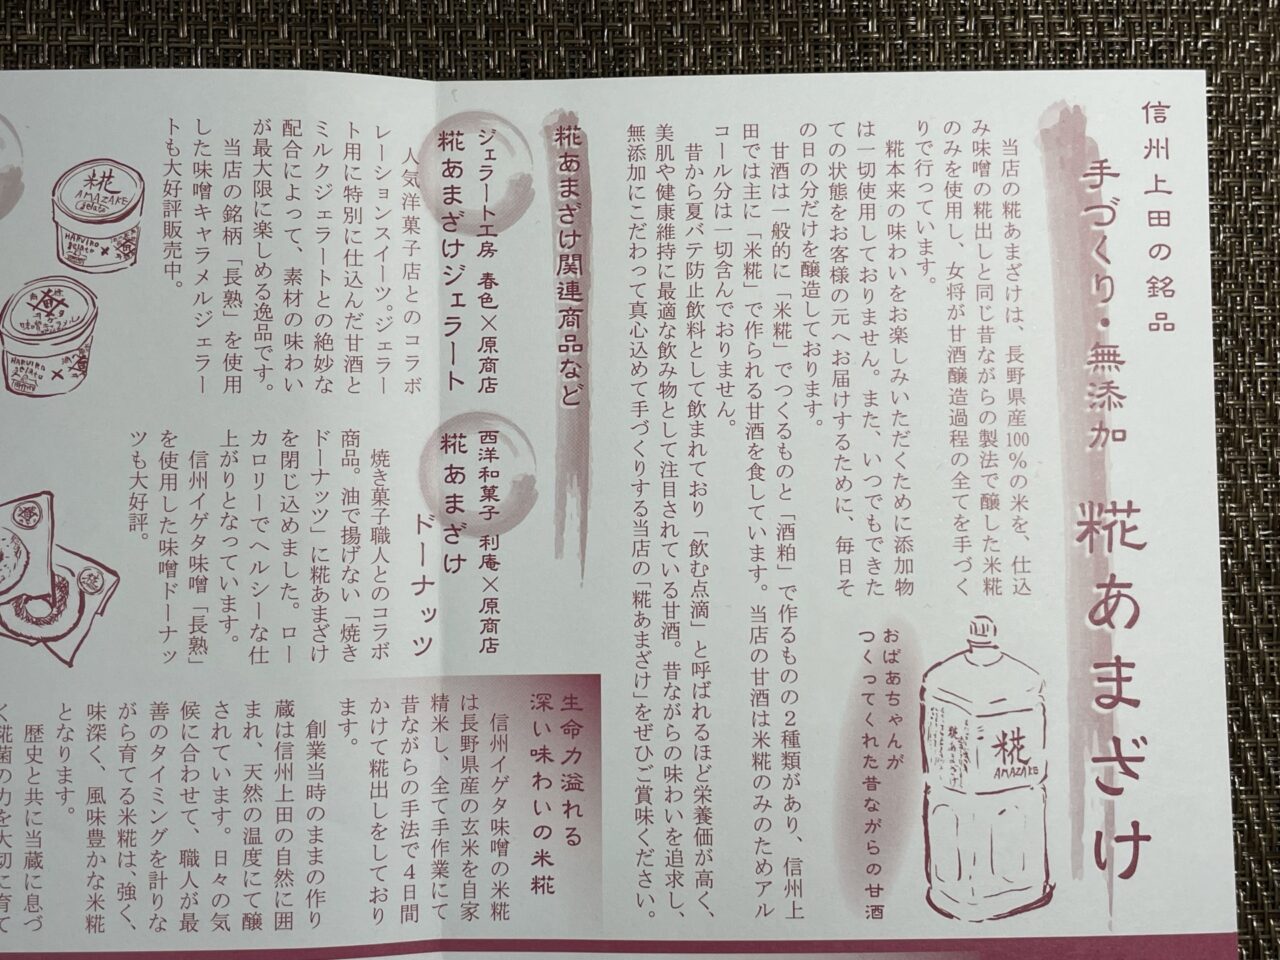 信州上田の銘品
手づくり・無添加 糀あまざけ
当店の糀あまざけは、長野県産100%の米を、仕込
み味噌の糀出しと同じ昔ながらの製法で醸した米糀
のみを使用し、女将が甘酒醸造過程の全てを手づく
りで行っています。
糀本来の味わいをお楽しみいただくために添加物
は一切使用しておりません。また、いつでもできた
ての状態をお客様の元へお届けするために、毎日そ
の日の分だけを醸造しております。
甘酒は一般的に「米糀」でつくるものと「酒粕」で作るものの2種類があり、信州上
田では主に「米糀」で作られる甘酒を食しています。当店の甘酒は米糀のみのためアル
コール分は一切含んでおりません。
昔から夏バテ防止飲料として飲まれており「飲む点滴」と呼ばれるほど栄養価が高く、
美肌や健康維持に最適な飲み物として注目されている甘酒。昔ながらの味わいを追求し、
無添加にこだわって真心込めて手づくりする当店の「糀あまざけ」をぜひご賞味ください。
おばあちゃんが
つくってくれた昔ながらの甘酒
糀
AMAZAKE
糀あまざけ
糀あまざけ関連商品など
ジェラート工房 春色×原商店
糀あまざけジェラート
人気洋菓子店とのコラボ
レーションスイーツ。ジェラー
ト用に特別に仕込んだ甘酒と
ミルクジェラートとの絶妙な
配合によって、素材の味わい
が最大限に楽しめる逸品です。
当店の銘柄「長熟」を使用
した味噌キャラメルジェラー
トも大好評販売中。
糀
AMAZAKE
gelato
HARUIRO
gelato
×
HARUIRO
gelato
×
西洋和菓子 利庵×原商店
糀あまざけ
ドーナッツ
焼き菓子職人とのコラボ
商品。油で揚げない「焼き
ドーナッツ」に糀あまざけ
を閉じ込めました。ロー
カロリーでヘルシーな仕
上がりとなっています。
信州イゲタ味噌「長熟」
を使用した味噌ドーナッ
ツも大好評。
生命力溢れる
深い味わいの米糀
信州イゲタ味噌の米糀
は長野県産の玄米を自家
精米し、全て手作業にて
昔ながらの手法で4日間
かけて糀出しをしており
ます。
創業当時のままの作り
蔵は信州上田の自然に囲
まれ、天然の温度にて醸
されています。日々の気
候に合わせて、職人が最
善のタイミングを計りな
がら育てる米糀は、強く、
味深く、風味豊かな米糀
となります。
歴史と共に当蔵に息づ
く糀菌の力を大切に育て